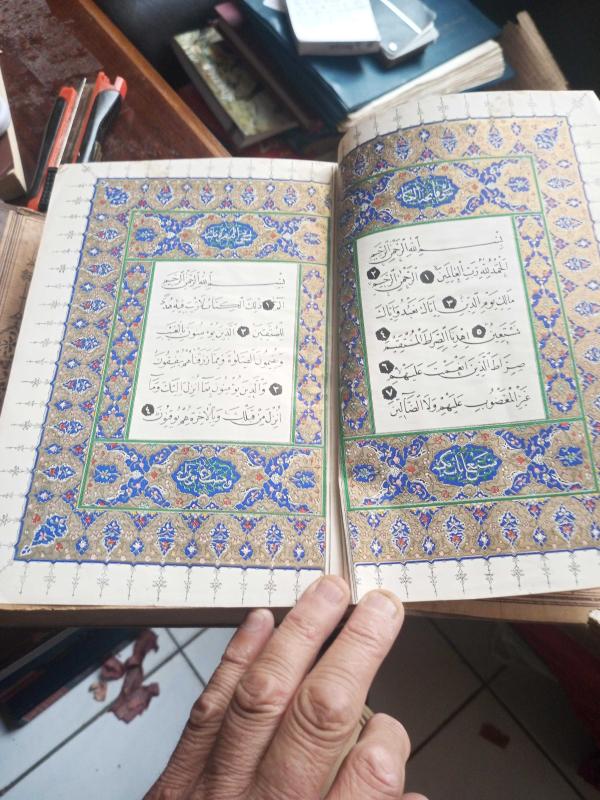 بِسْمِ اللهِ الرَّحْمٰنِ الرَّحِيمِ
اَلْحَمْدُ لِلّٰهِ رَبِّ الْعَالَمِينَ ١ اَلرَّحْمٰنِ الرَّحِيمِ ٢
مَالِكِ يَوْمِ الدِّينِ ٣ اِيَّاكَ نَعْبُدُ وَاِيَّاكَ
نَسْتَعِينُ ٤ اِهْدِنَا الصِّرَاطَ الْمُسْتَقِيمَ ٥
صِرَاطَ الَّذِينَ اَنْعَمْتَ عَلَيْهِمْ ٦
غَيْرِ الْمَغْضُوبِ عَلَيْهِمْ وَلَا الضَّالِّينَ ٧
سبع آيات مكية
بِسْمِ اللهِ الرَّحْمٰنِ الرَّحِيمِ
الٓمٓ ١ ذٰلِكَ الْكِتَابُ لَا رَيْبَ فِيهِ هُدًى
لِلْمُتَّقِينَ ٢ اَلَّذِينَ يُؤْمِنُونَ بِالْغَيْبِ
وَيُقِيمُونَ الصَّلٰوةَ وَمِمَّا رَزَقْنَاهُمْ يُنْفِقُونَ
٣ وَالَّذِينَ يُؤْمِنُونَ بِمَا اُنْزِلَ اِلَيْكَ وَمَا
اُنْزِلَ مِنْ قَبْلِكَ وَبِالْاٰخِرَةِ هُمْ يُوقِنُونَ ٤